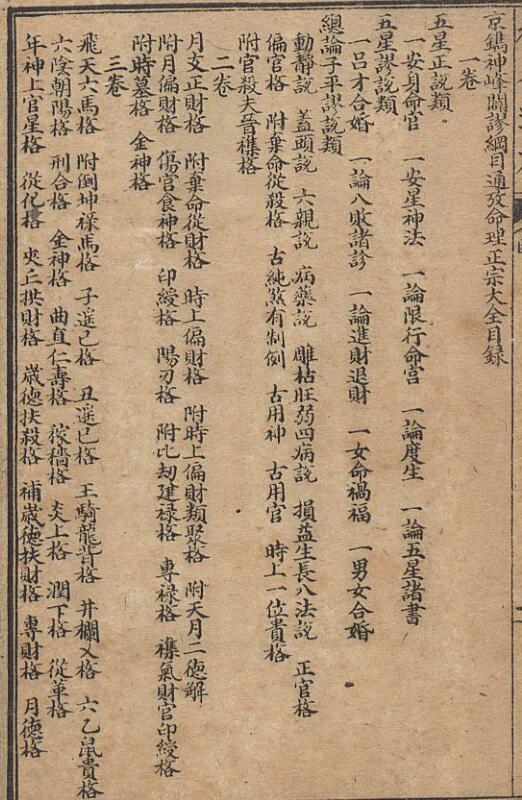 京鐫神峰闢謬綱目通攷命理正宗大全目録
一卷
五星正說類
一安身命官 一安星神法 一論限行命宮 一論度生 一論五星諸書
五星謬說類
一吕才合婚 一論八敗諸診 一論進財退財 一女命禍福 一男女合婚
總論子平謬說類
動靜說 蓋頭說 六親說 病藥說 雕枯旺弱四病說 損益生長八法說 正官格
偏官格 附棄命從殺格 古純煞有制例 古用神 古用官 時上一位貴格
附官殺去畱襍格
二卷
月支正財格 附棄命從財格 時上偏財格 附時上偏財類聚格 附天月二德解
附月偏財格 傷官食神格 印綬格 陽刃格 附比刼建禄格 專禄格 襍氣財官印綬格
附時墓格 金神格
三卷
飛天六馬格 附倒坤禄馬格 子遥己格 丑遥巳格 壬騎龍背格 井欄乂格 六乙鼠貴格
六陰朝陽格 刑合格 金神格 曲直仁壽格 稼穡格 炎上格 潤下格 從革格
年神上官星格 從化格 夾丘拱財格 歲德扶殺格 補歲德扶財格 專財格 月德格